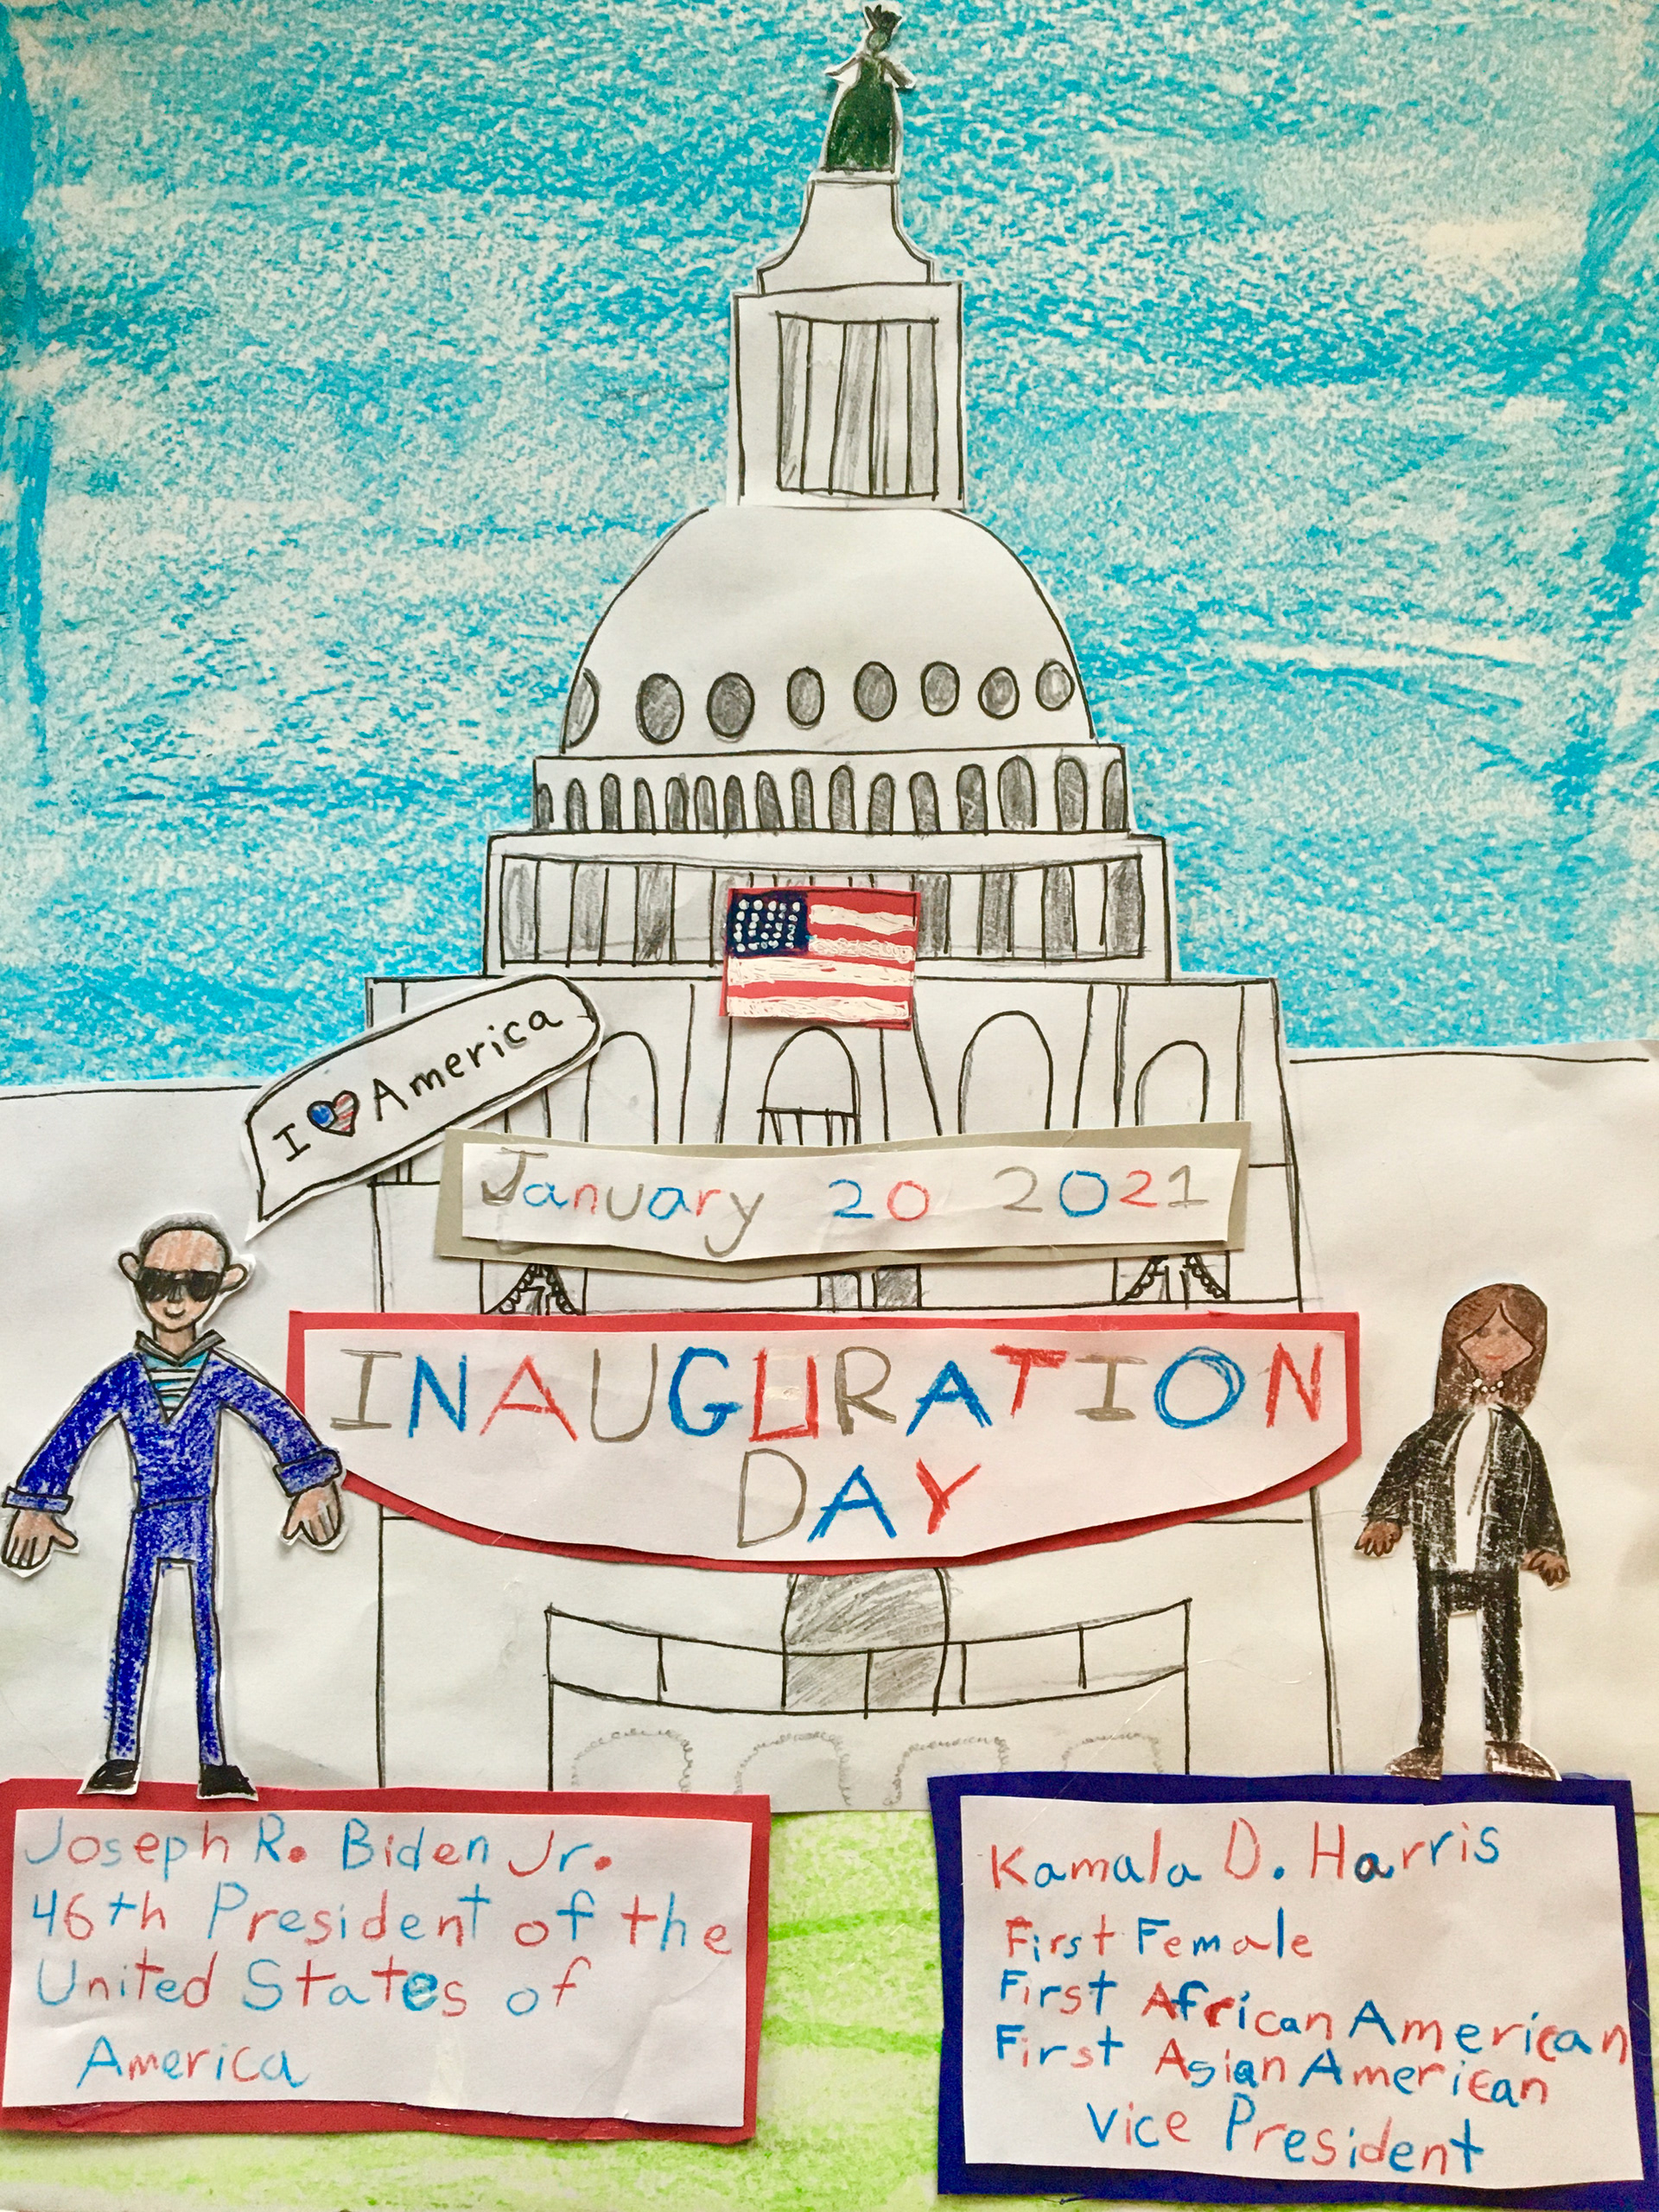 I America
January 20 2021
INAUGURATION
DAY
Joseph R. Biden Jr.
46th President of the
United States of
America
Kamala D. Harris
First Female
First African American
First Asian American
Vice President